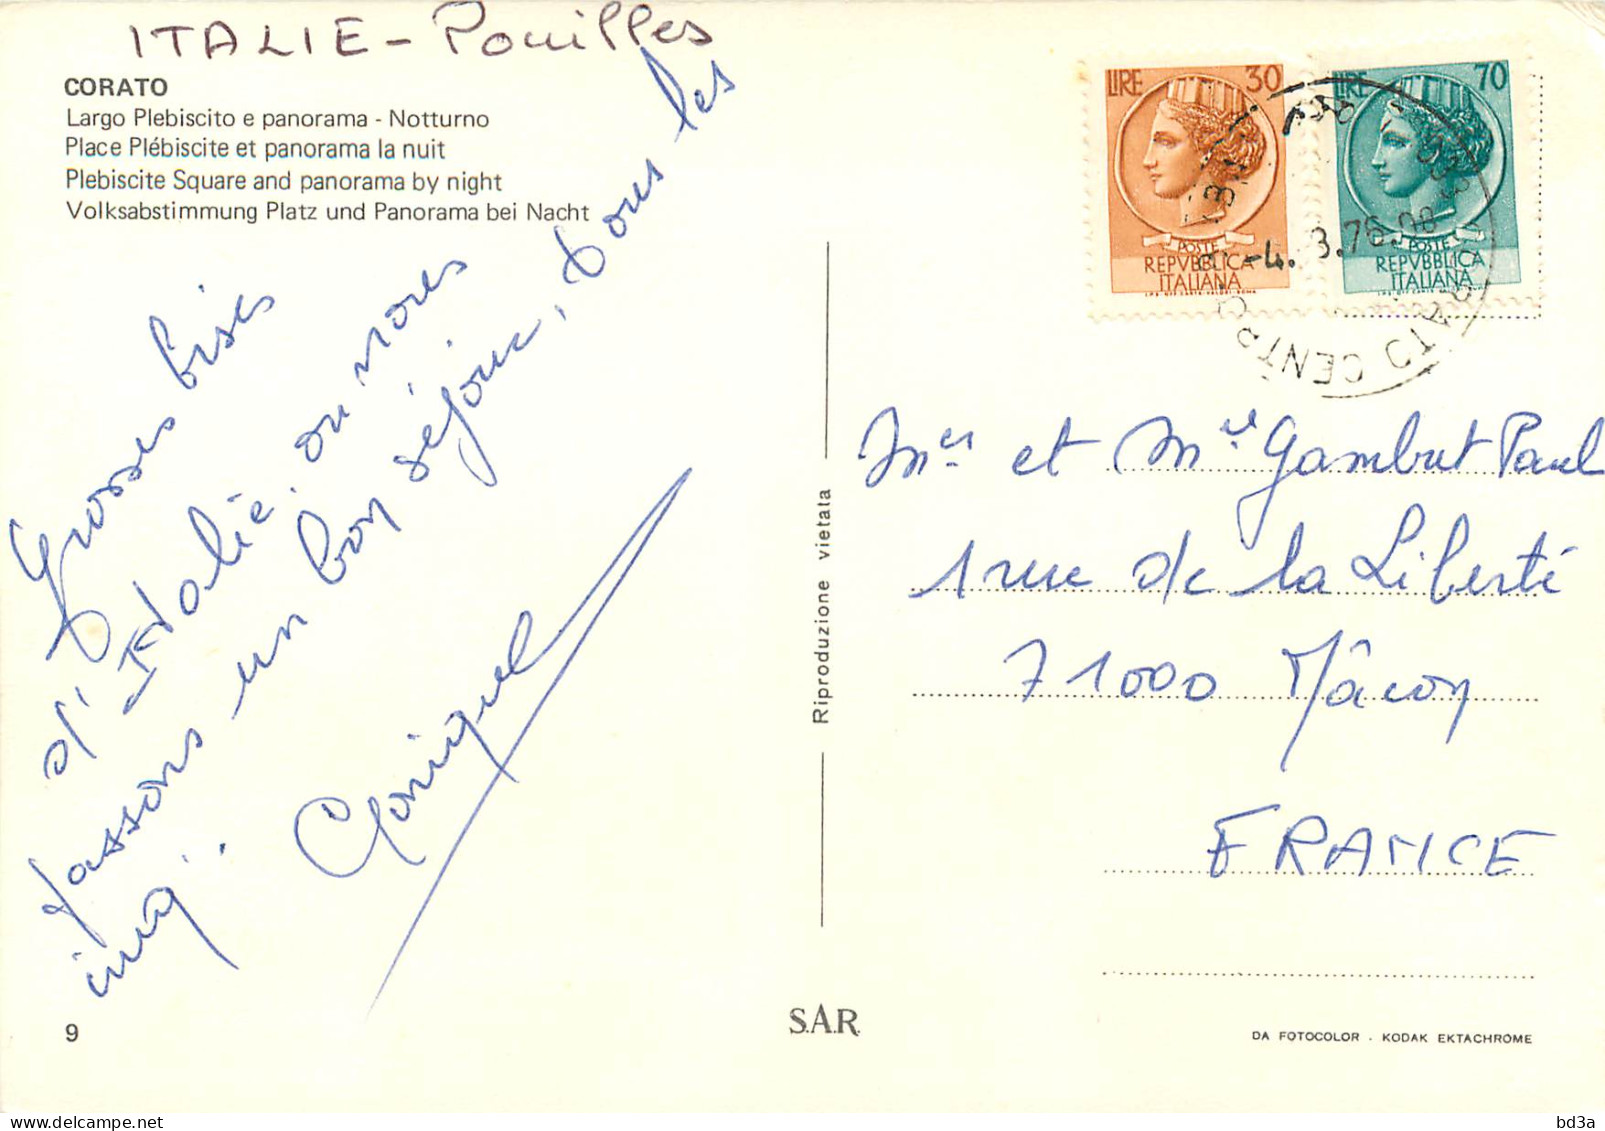 ITALIE - Pouilles
CORATO
Largo Plebiscito e panorama - Notturno
Place Plébiscite et panorama la nuit
Plebiscite Square and panorama by night
Volksabstimmung Platz und Panorama bei Nacht
Grosses bises
d'Italie, ou nous
passons un bon séjour, tous les
cinq.
9
Riproduzione vietata
S.A.R.
LIRE 30
POSTE
REPVBBLICA
ITALIANA
LIRE 70
POSTE
REPVBBLICA
ITALIANA
-4. 3.76.
CENTRO
Mer et Mme Gambut Paul
1 rue de la Liberté
71000 Mâcon
FRANCE
DA FOTOCOLOR - KODAK EKTACHROME
bd3a